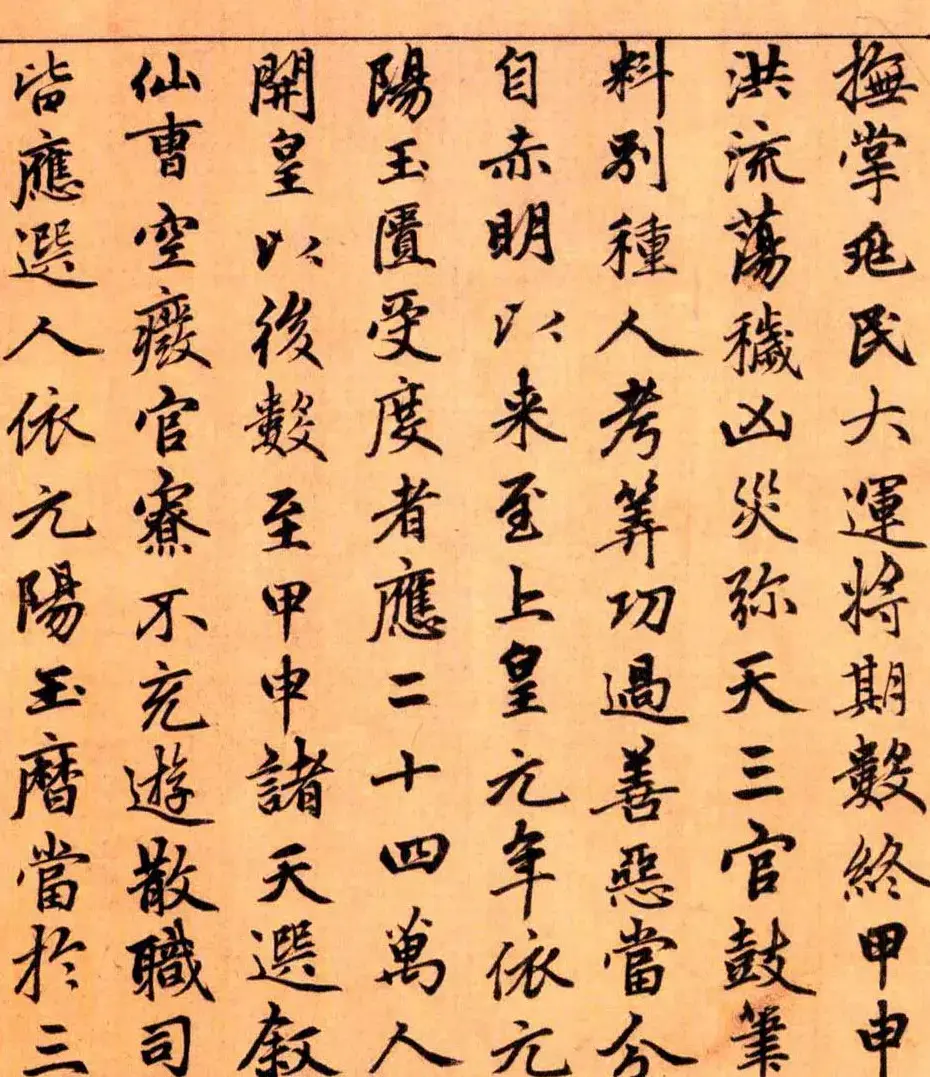 撫掌兆民大運將期數終甲申
洪流蕩穢凶災弥天三官鼓筆
料別種人考筭功過善惡當分
自赤明以来至上皇元年依元
陽玉匱受度者應二十四萬人
開皇以後數至甲申諸天選叙
仙曹空廢官寮不充遊散職司
皆應選人依元陽玉曆當於三